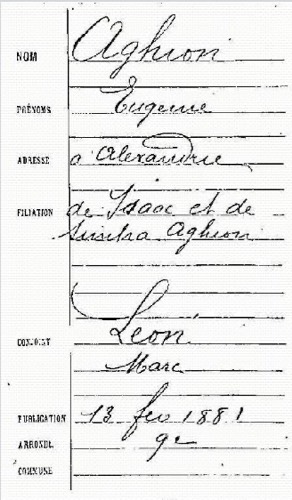 NOM Aghion
PRÉNOMS Eugenie
ADRESSE a Alexandrie
FILIATION de Isaac et de
Simha Aghion
CONJOINT Léon
Marc
PUBLICATION 13 fev 1881
ARRONDT. 9e
COMMUNE